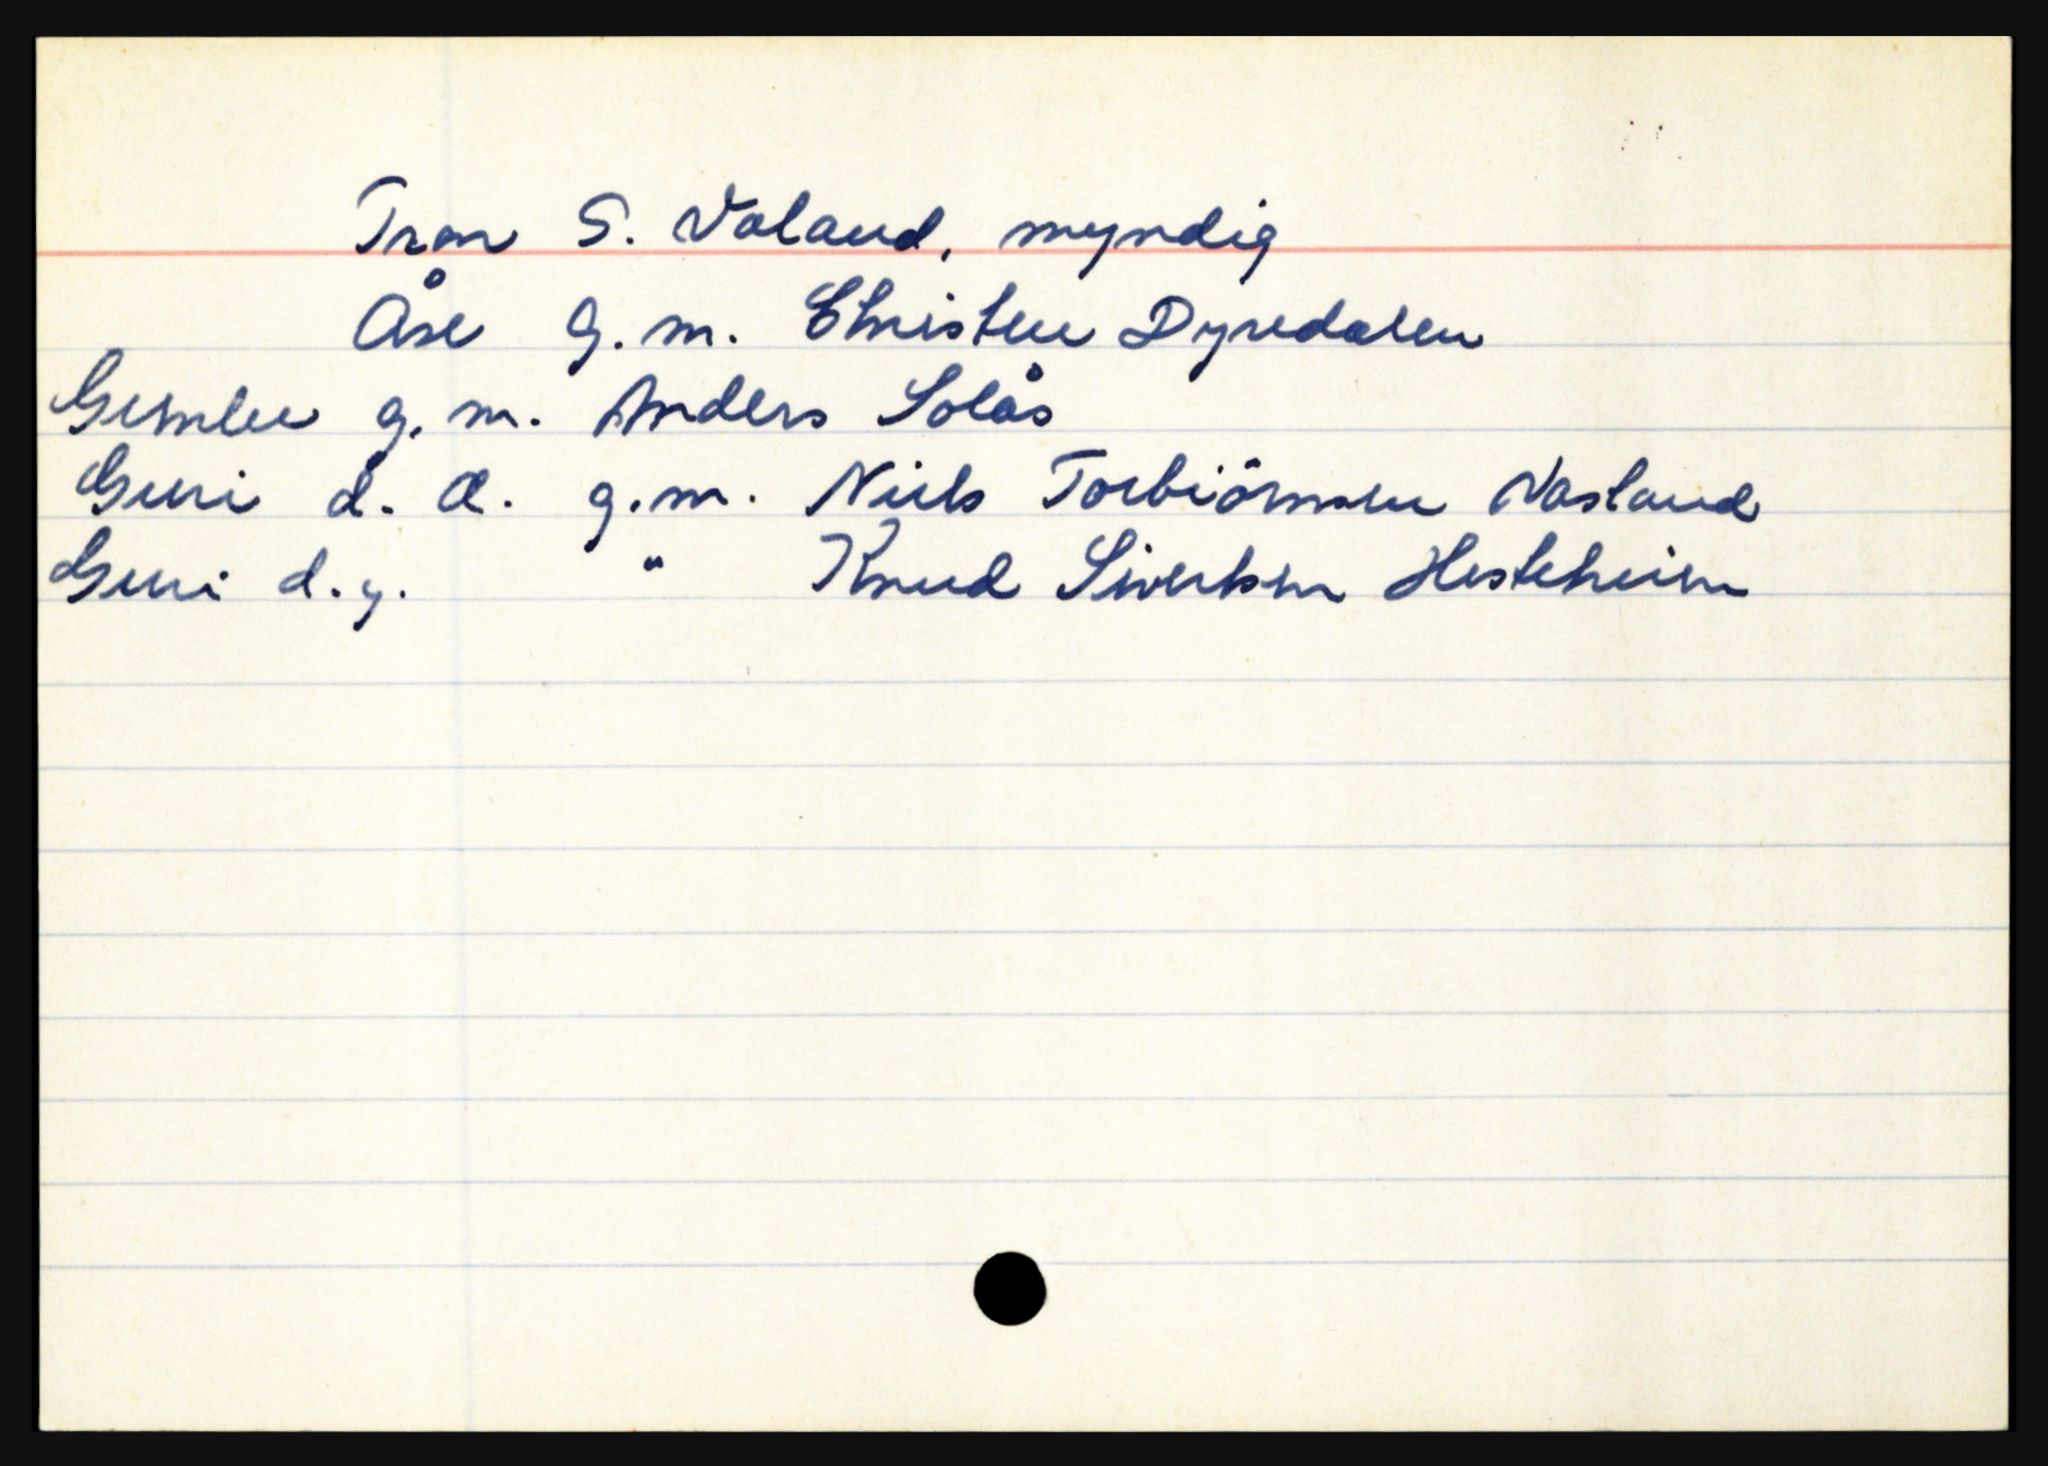 Tron S. Valand, myndig
Åse g.m. Christen Dyredalen
g.m. Anders Solås
Guri d.æ. g.m. Niels Torbiörnsen Nasland
Guri d.y. " Knud Siverksen Hesteheien